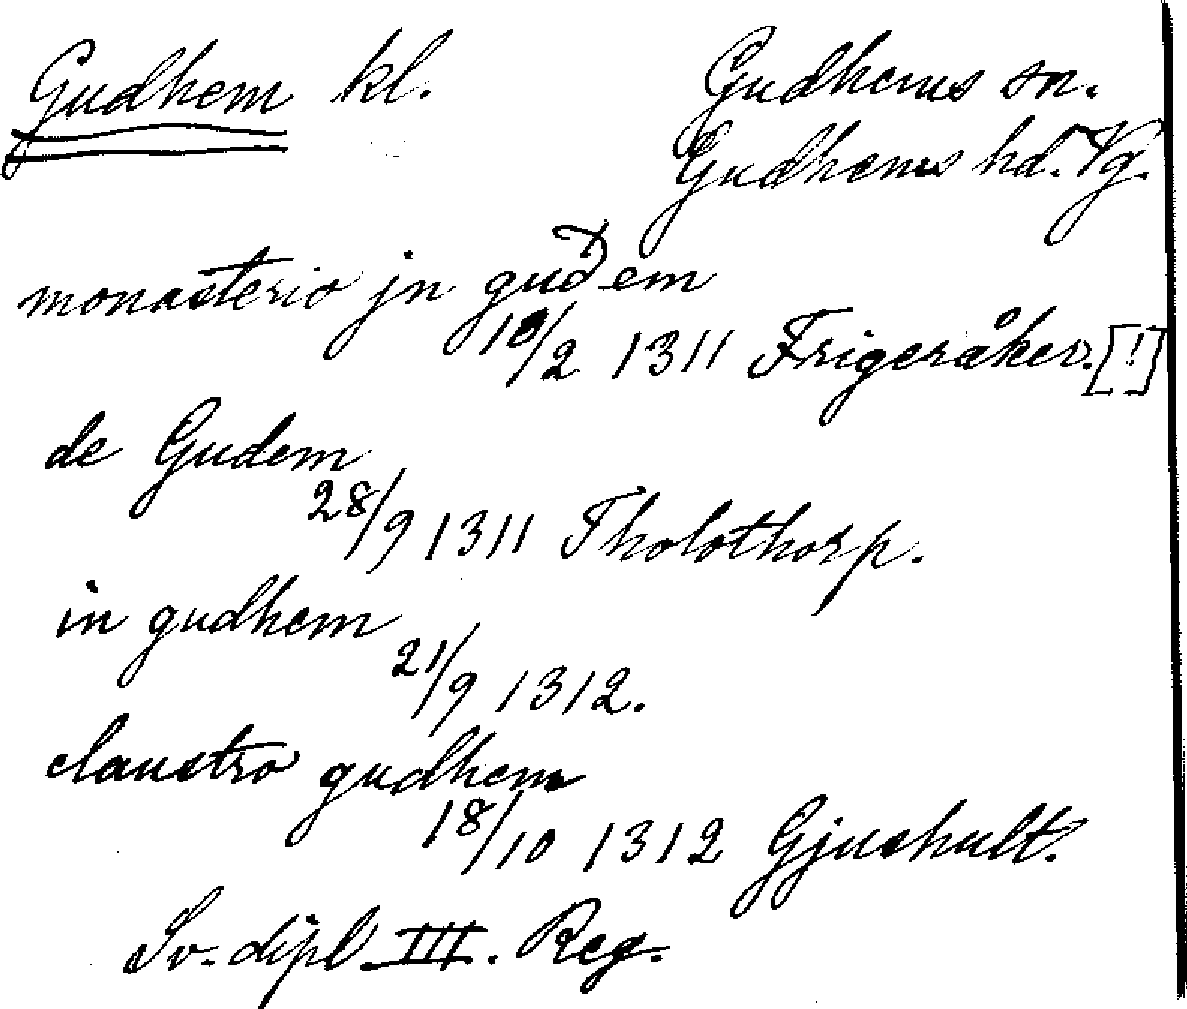 Gudhem kl.
Gudhems sn.
Gudhems hd. Vg.
monasterio jn guđem
18/2 1311 Frigeråker. [!]
de Gudem
28/9 1311 Tholothorp.
in gudhem
21/9 1312.
claustro gudhem
18/10 1312 Gjushult.
Sv. dipl. III. Reg.